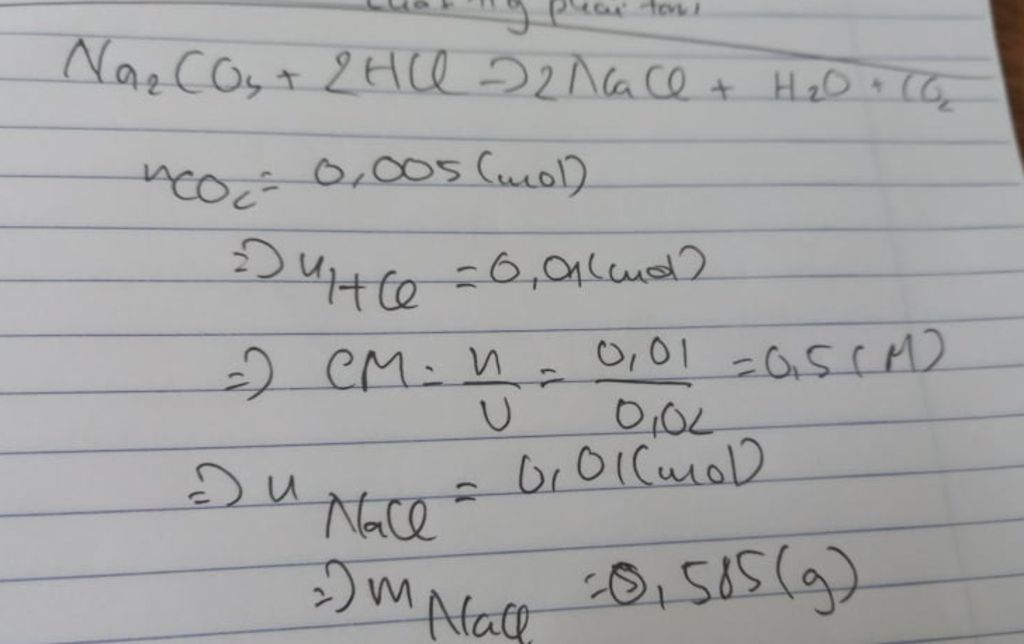 Na₂CO₃ + 2HCl => 2NaCl + H₂O + CO₂
nCO₂ = 0,005 (mol)
=> nHCl = 0,01 (mol)
=> CM = n/V = 0,01/0,02 = 0,5 (M)
=> n NaCl = 0,01 (mol)
=> m NaCl = 0,585 (g)